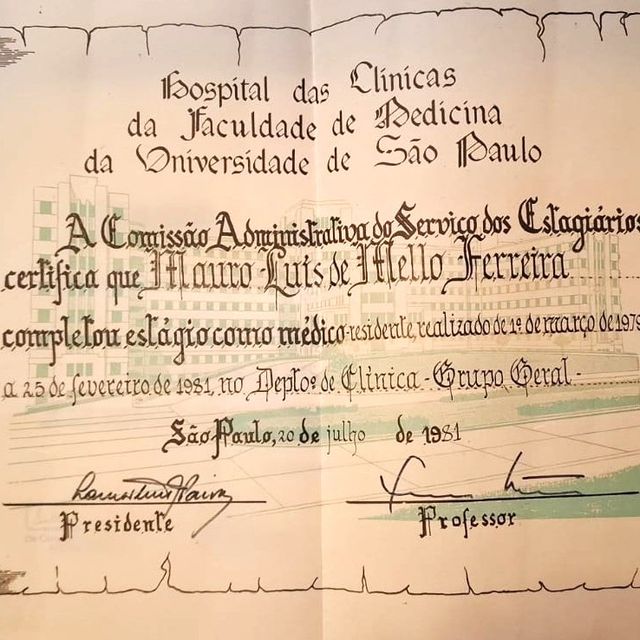 Hospital das Clínicas
da Faculdade de Medicina
da Universidade de São Paulo
A Comissão Administrativa do Serviço dos Estagiários
certifica que Mauro Luis de Mello Ferreira
completou estágio como médico residente, realizado de 1º de março de 1979
a 25 de fevereiro de 1981, no Deptoº de Clínica - Grupo Geral -
São Paulo, 20 de julho de 1981
Presidente Professor